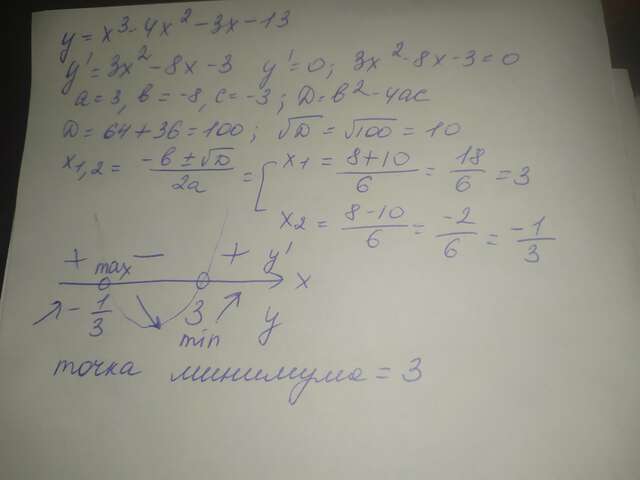 y = x³ - 4x² - 3x - 13
y' = 3x² - 8x - 3   y' = 0; 3x² - 8x - 3 = 0
a = 3, b = -8, c = -3; D = b² - 4ac
D = 64 + 36 = 100; √D = √100 = 10
x₁,₂ = (-b ± √D)/(2a) = [ x₁ = (8+10)/6 = 18/6 = 3
x₂ = (8-10)/6 = -2/6 = -1/3
+ max - + y'
x
-1/3 3 y
min
точка минимума = 3